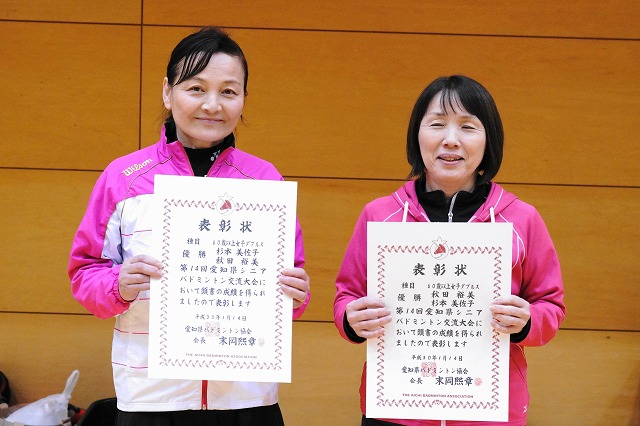 Wilson
表彰状
種目 60歳以上女子ダブルス
優勝 杉本 美佐子
秋田 裕美
第14回愛知県シニア
バドミントン交流大会に
おいて頭書の成績を得られ
ましたので表彰します
平成30年1月14日
愛知県バドミントン協会
会長 末岡熙章
THE AICHI BADMINTON ASSOCIATION
表彰状
種目 60歳以上女子ダブルス
優勝 秋田 裕美
杉本 美佐子
第14回愛知県シニア
バドミントン交流大会に
おいて頭書の成績を得られ
ましたので表彰します
平成30年1月14日
愛知県バドミントン協会
会長 末岡熙章
THE AICHI BADMINTON ASSOCIATION